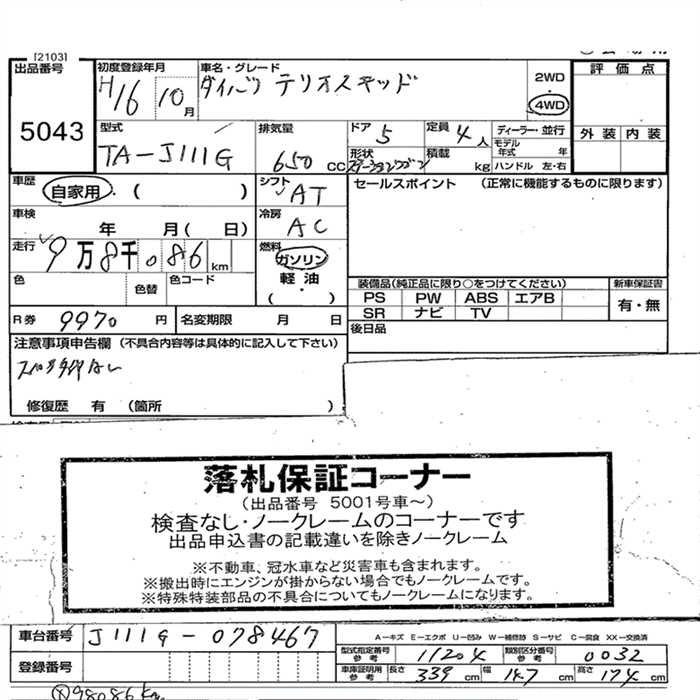 [2103]
出品番号
5043
初度登録年月
H16 10月
車名・グレード
ダイハツ テリオスキッド
2WD
4WD
評価点
外装 内装
型式
TA-J111G
排気量
650 CC
ドア 5
定員 4人
形状
ステーションワゴン
積載
kg
ディーラー・並行
モデル年式 年
ハンドル 左・右
車歴
自家用・( )
シフト AT
セールスポイント (正常に機能するものに限ります)
車検
年 月( 日)
冷房 AC
走行 9万8千086km
燃料
ガソリン・軽油
( )
色 色替 色コード
装備品(純正品に限り○をつけてください)
新車保証書
PS PW ABS エアB
有・無
SR ナビ TV
R券 9970円
名変期限 月 日
後日品
注意事項申告欄(不具合内容等は具体的に記入して下さい)
修復歴 有 (箇所 )
落札保証コーナー
(出品番号 5001号車~)
検査なし・ノークレームのコーナーです
出品申込書の記載違いを除きノークレーム
※不動車、冠水車など災害車も含まれます。
※搬出時にエンジンが掛からない場合でもノークレームです。
※特殊特装部品の不具合についてもノークレームになります。
車台番号 J111G-078467
A-キズ E-エクボ U-凹み W-補修跡 S-サビ C-腐食 XX-交換済
型式指定番号参考 11204
類別区分番号参考 0032
登録番号
車庫証明用参考 長さ 339cm 幅 147cm 高さ 174cm
98086km